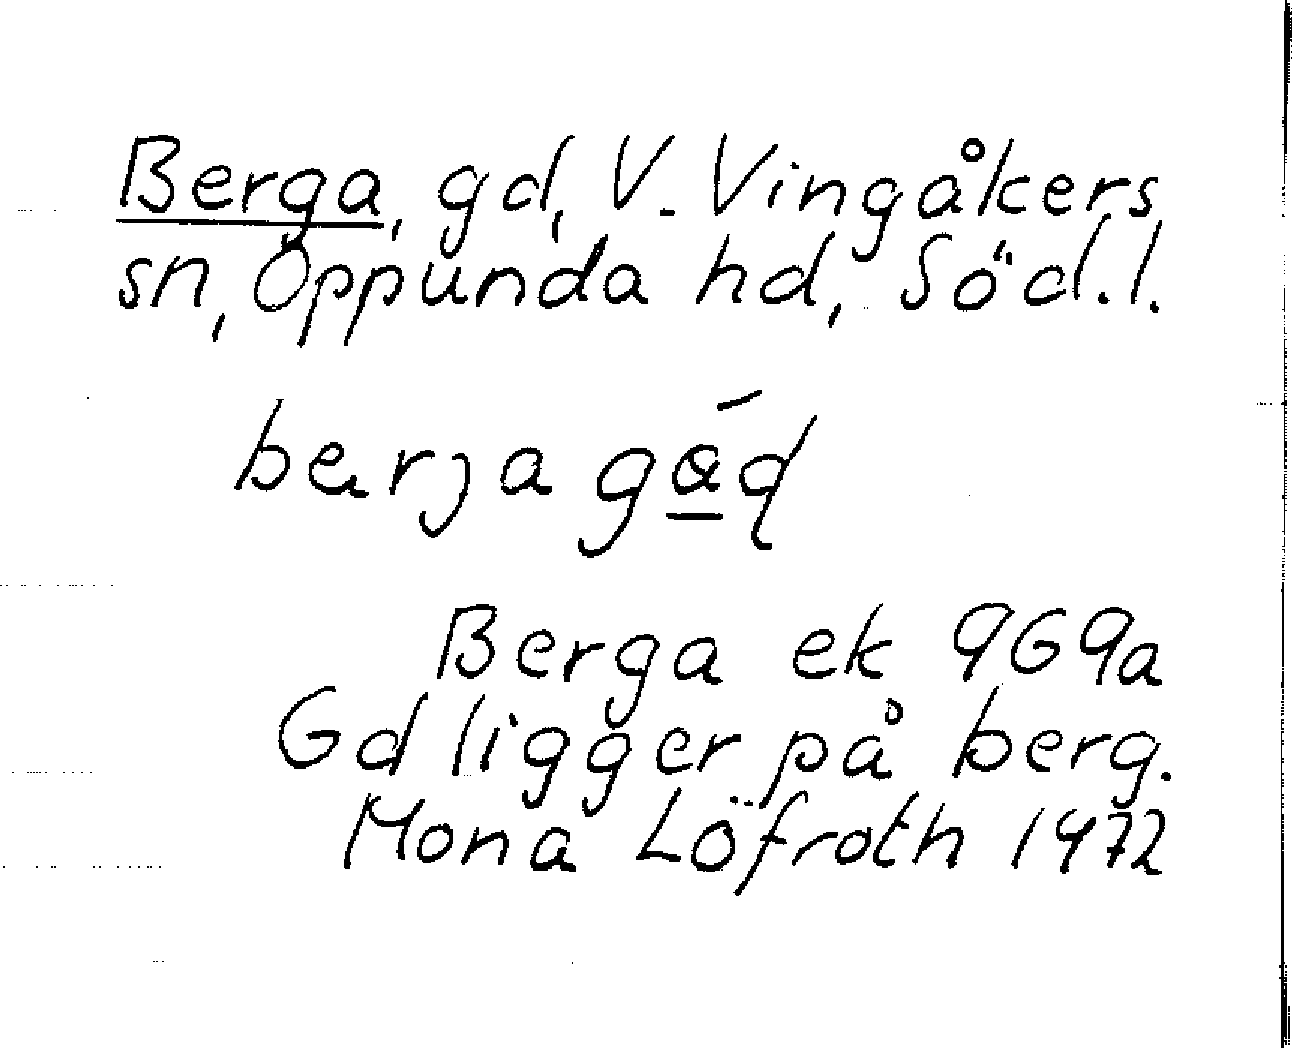 Berga, gd, V. Vingåkers
sn, Oppunda hd, Söd.l.
Berga ek 969a
Gd ligger på berg.
Mona Löfroth 1972